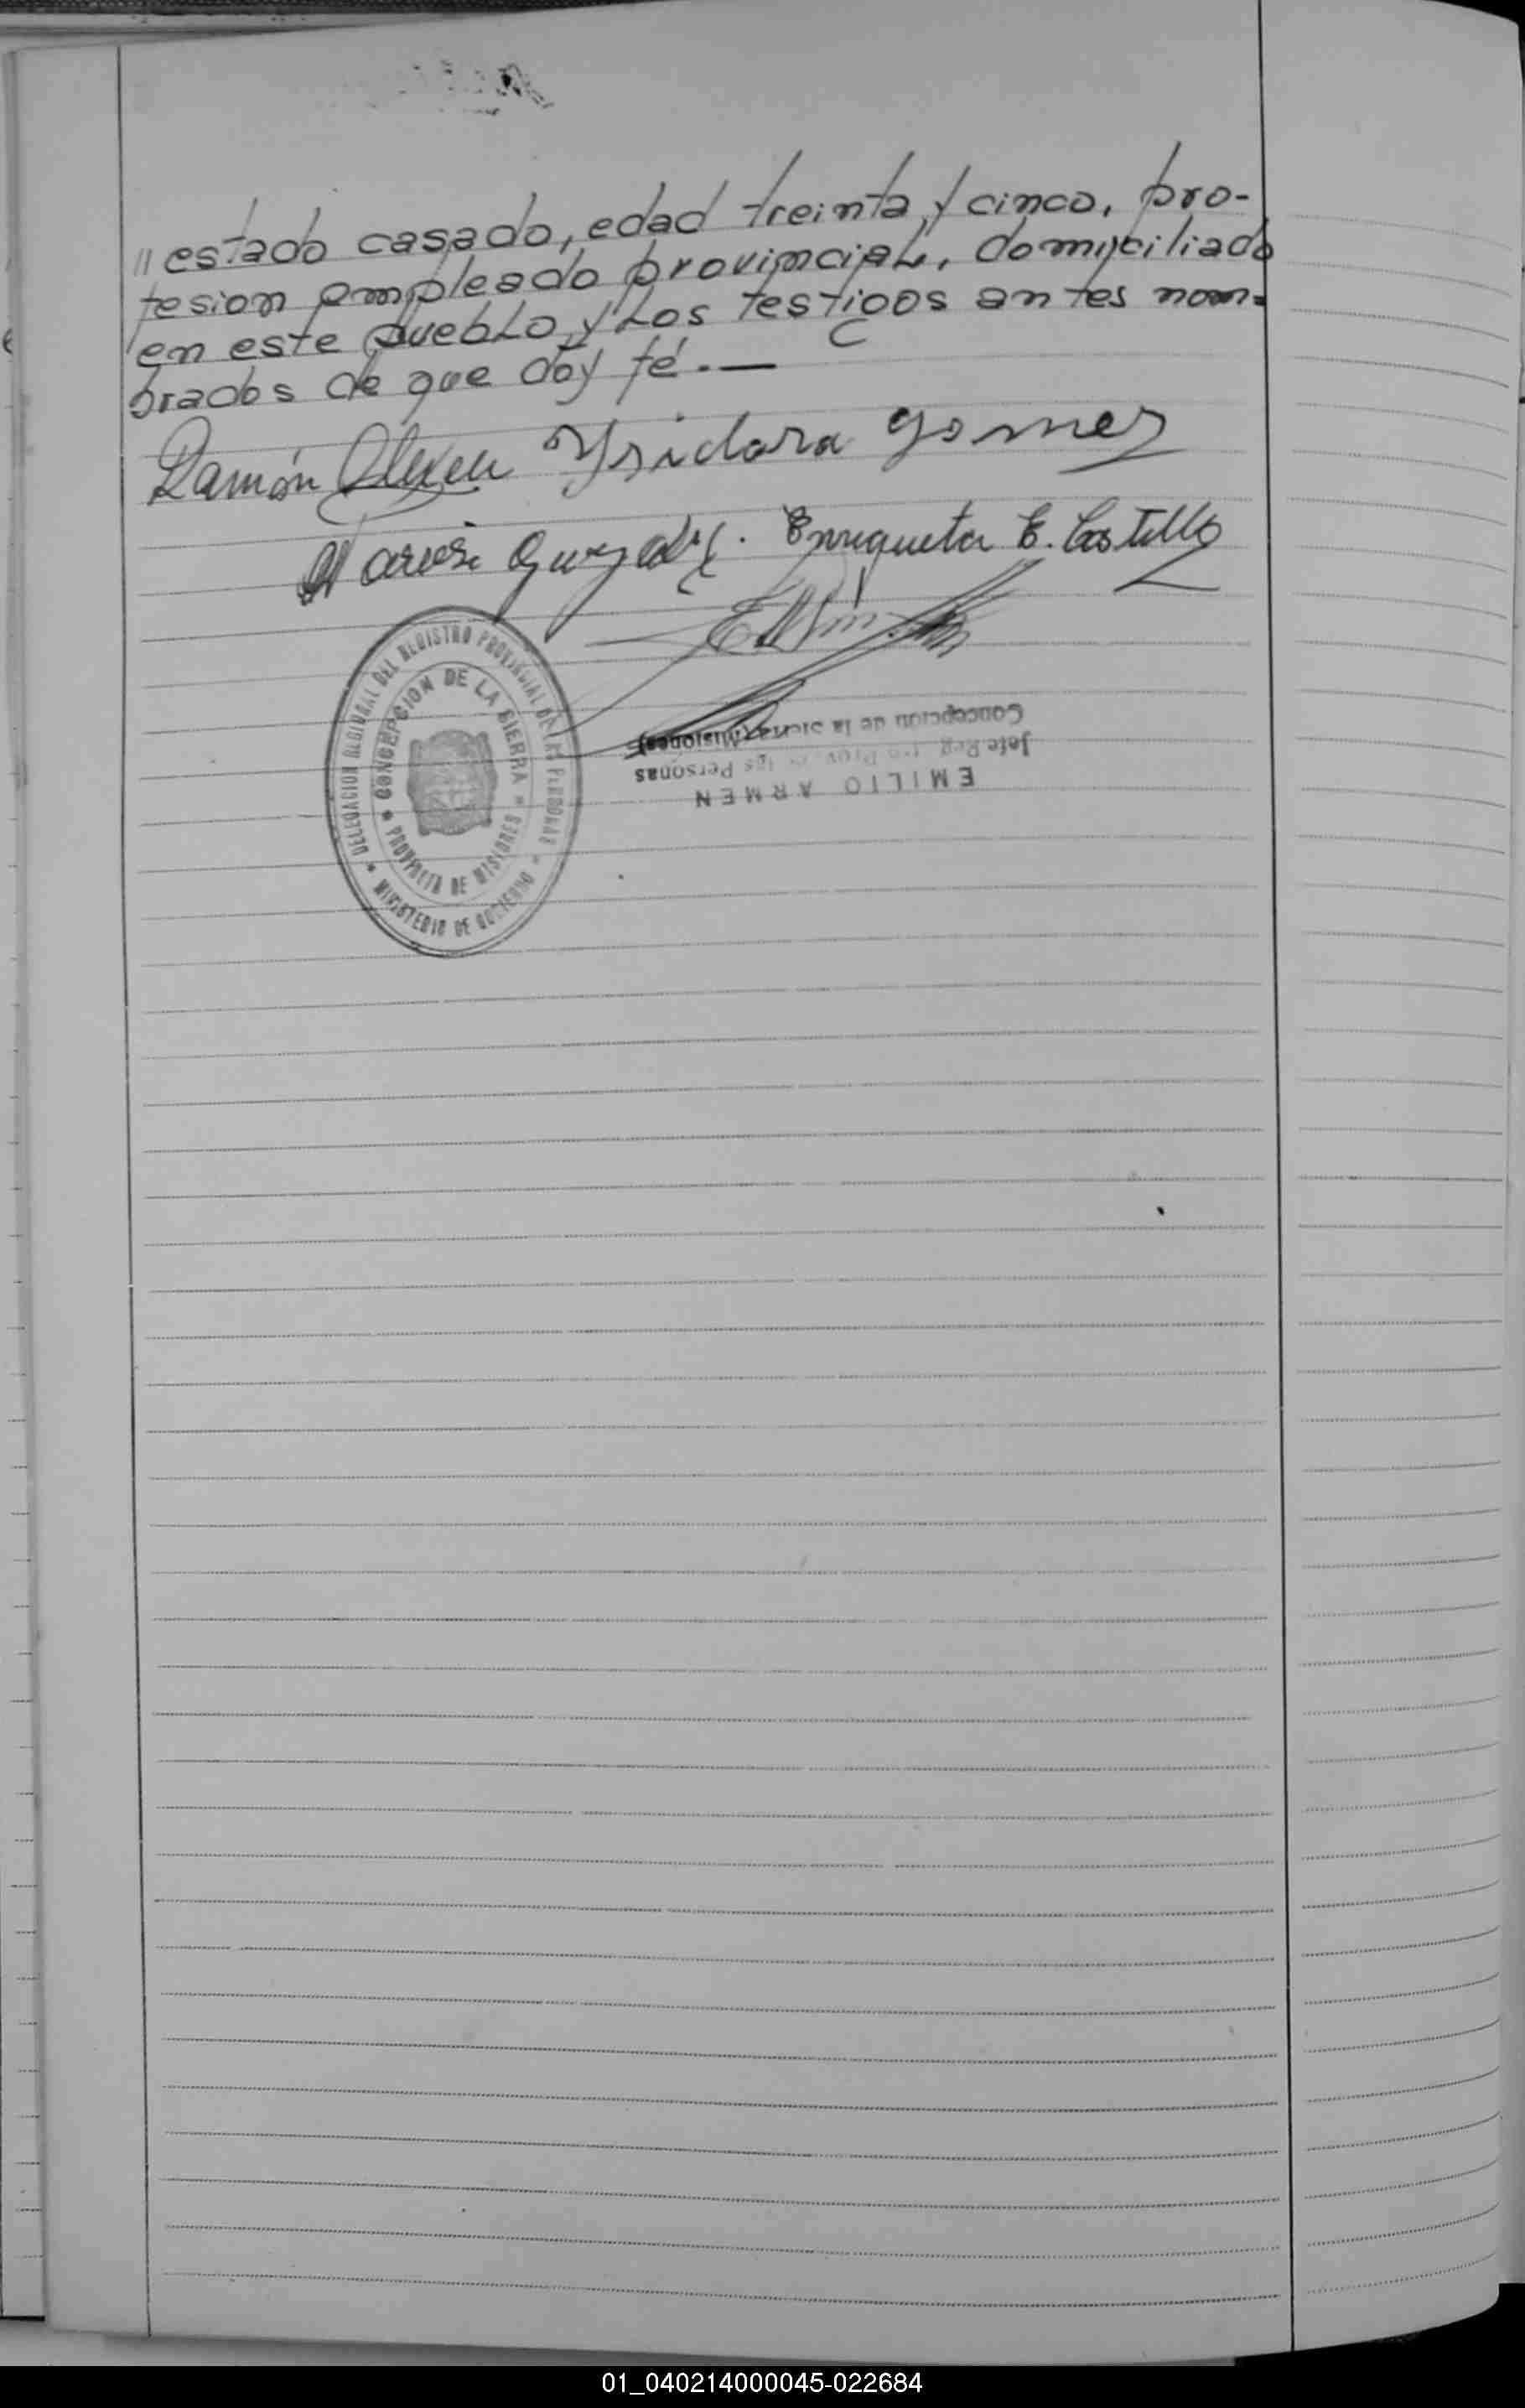 "estado casado, edad treinta y cinco, pro-
fesion empleado provincial, domiciliado
en este pueblo y los testigos antes nom=
brados de que doy fé.—
Ramón Ysidora Gomez
Enriqueta E. Castillo
DELEGACION REGIONAL DEL REGISTRO PROVINCIAL DE LAS PERSONAS * MINISTERIO DE GOBIERNO *
CONCEPCION DE LA SIERRA * PROVINCIA DE MISIONES *
EMILIO ARMEN
Jefe Reg. Prov. de las Personas
Concepción de la Sierra (Misiones)
01_040214000045-022684